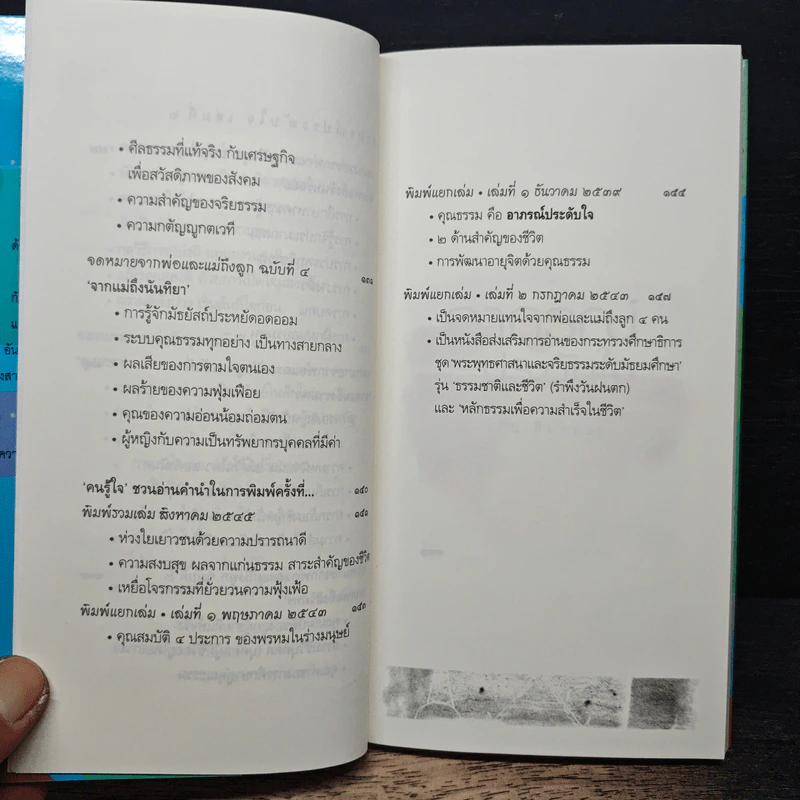 • ศีลธรรมที่แท้จริง กับเศรษฐกิจ
เพื่อสวัสดิภาพของสังคม
• ความสำคัญของจริยธรรม
• ความกตัญญูกตเวที
จดหมายจากพ่อและแม่ถึงลูก ฉบับที่ ๔
'จากแม่ถึงนันทิยา'
• การรู้จักมัธยัสถ์ประหยัดอดออม
• ระบบคุณธรรมทุกอย่าง เป็นทางสายกลาง
• ผลเสียของการตามใจตนเอง
• ผลร้ายของความฟุ่มเฟือย
• คุณของความอ่อนน้อมถ่อมตน
• ผู้หญิงกับความเป็นทรัพยากรบุคคลที่มีค่า
'คนรู้ใจ' ชวนอ่านคำนำในการพิมพ์ครั้งที่... ๑๔๐
พิมพ์รวมเล่ม สิงหาคม ๒๕๔๕ ๑๔๑
• ห่วงใยเยาวชนด้วยความปรารถนาดี
• ความสงบสุข ผลจากแก่นธรรม สาระสำคัญของชีวิต
• เหยื่อโจรกรรมที่ยั่วยวนความฟุ้งเฟ้อ
พิมพ์แยกเล่ม • เล่มที่ ๑ พฤษภาคม ๒๕๔๓ ๑๔๓
• คุณสมบัติ ๔ ประการ ของพรหมในร่างมนุษย์
พิมพ์แยกเล่ม • เล่มที่ ๑ ธันวาคม ๒๕๓๙ ๑๔๕
• คุณธรรม คือ อาภรณ์ประดับใจ
• ๒ ด้านสำคัญของชีวิต
• การพัฒนาอายุจิตด้วยคุณธรรม
พิมพ์แยกเล่ม • เล่มที่ ๒ กรกฎาคม ๒๕๔๓ ๑๔๗
• เป็นจดหมายแทนใจจากพ่อและแม่ถึงลูก ๔ คน
• เป็นหนังสือส่งเสริมการอ่านของกระทรวงศึกษาธิการ
ชุด 'พระพุทธศาสนาและจริยธรรมระดับมัธยมศึกษา'
รุ่น 'ธรรมชาติและชีวิต' (รำพึงวันฝนตก)
และ 'หลักธรรมเพื่อความสำเร็จในชีวิต'